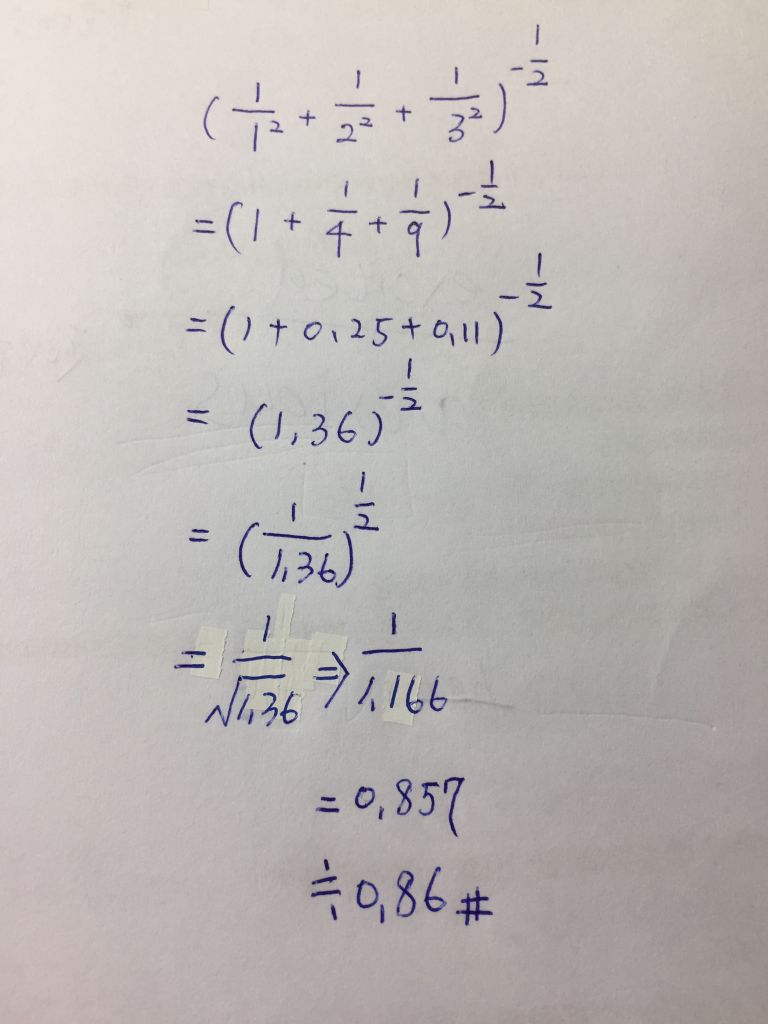 (1/1² + 1/2² + 1/3²)^-1/2
=(1 + 1/4 + 1/9)^-1/2
=(1+0,25+0,11)^-1/2
= (1,36)^-1/2
= (1/1,36)^1/2
= 1/√1,36 ⇒ 1/1,166
= 0,857
≒ 0,86 #